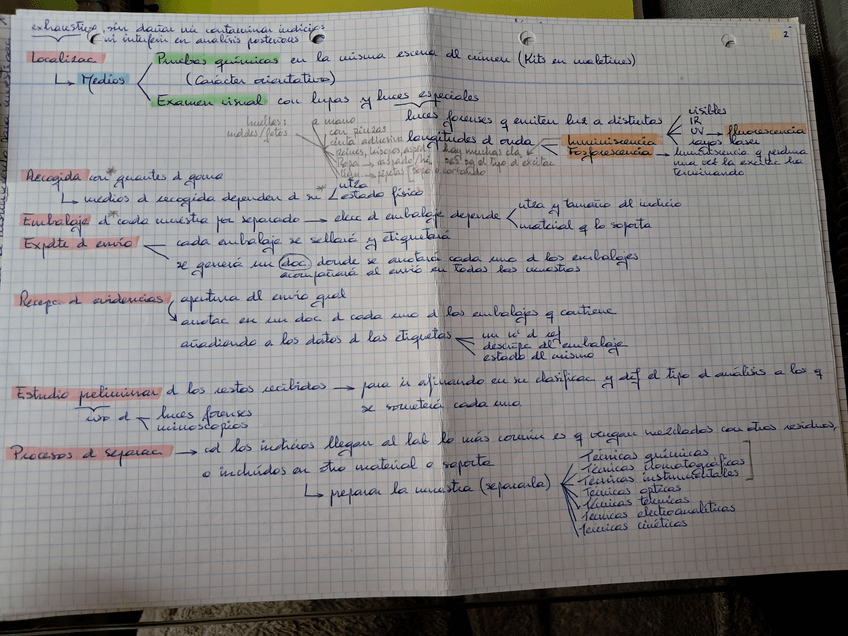 exhaustivo, sin dañar ni contaminar indicios
ni interferir en análisis posteriores
2
Localizac
Pruebas químicas en la misma escena del crimen (Kits en maletines)
↳ Medios
(Carácter orientativo)
Examen visual con lupas y luces especiales
luces forenses q emiten luz a distintas
longitudes d onda
visibles
IR
UV → fluorescencia
rayos láser
Luminiscencia
Fosforescencia → luminiscencia q perdura
una vez la excitac ha
terminado
huellas:
moldes/fotos
a mano
con pinzas
cinta adhesiva
hay muchas cla
ses sg el tipo d excitac
Recogida con* guantes d goma
↳ medios d recogida dependen d su*
ntza
estado físico
Embalaje d* cada muestra por separado → elecc d embalaje depende
ntza y tamaño del indicio
material q lo soporta
Expdte d envío
cada embalaje se sellará y etiquetará
se generá un doc donde se anotará cada uno d los embalajes
acompañará al envío en todas las muestras
Recepc. d evidencias
apertura del envío gral
anotac en un doc d cada uno d los embalajes q contiene
añadiendo a los datos d las etiquetas
un nº d ref
descripc del embalaje
estado del mismo
Estudio preliminar d los restos recibidos → para ir afinando en su clasificac y def el tipo d análisis a los q
se someterá cada uno
uso d
luces forenses
microscopios
Procesos d separac → cd los indicios llegan al lab lo más común es q vengan mezclados con otros residuos,
o incluidos en otro material o soporte
↳ preparar la muestra (separarla)
Técnicas químicas
Técnicas cromatográficas
Técnicas instrumentales
Técnicas ópticas
Técnicas térmicas
Técnicas electroanalíticas
Técnicas cinéticas